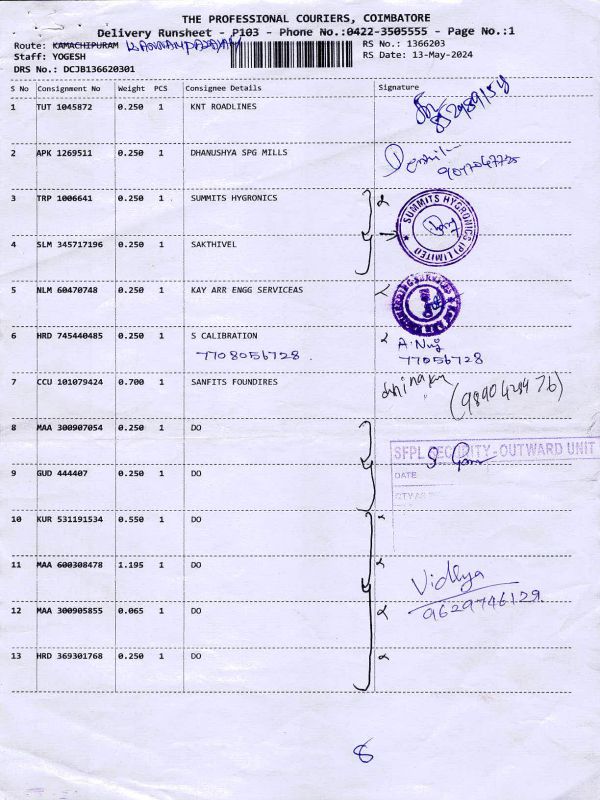 THE PROFESSIONAL COURIERS, COIMBATORE
Delivery Runsheet - P103 - Phone No.:0422-3505555 - Page No.:1
Route: KAMACHIPURAM
RS No.: 1366203
Staff: YOGESH
RS Date: 13-May-2024
DRS No.: DCJB136620301
S No Consignment No Weight PCS Consignee Details Signature
1 TUT 1045872 0.250 1 KNT ROADLINES
2 APK 1269511 0.250 1 DHANUSHYA SPG MILLS
3 TRP 1006641 0.250 1 SUMMITS HYGRONICS
SUMMITS HYGRONICS (P) LIMITED
4 SLM 345717196 0.250 1 SAKTHIVEL
5 NLM 60470748 0.250 1 KAY ARR ENGG SERVICEAS
6 HRD 745440485 0.250 1 S CALIBRATION
7708056728
77056728
7 CCU 101079424 0.700 1 SANFITS FOUNDIRES
(9890428476)
8 MAA 300907054 0.250 1 DO
SFPL SECURITY-OUTWARD UNIT
DATE
9 GUD 444407 0.250 1 DO
10 KUR 531191534 0.550 1 DO
11 MAA 600308478 1.195 1 DO
Vidhya
9629746129
12 MAA 300905855 0.065 1 DO
13 HRD 369301768 0.250 1 DO
8